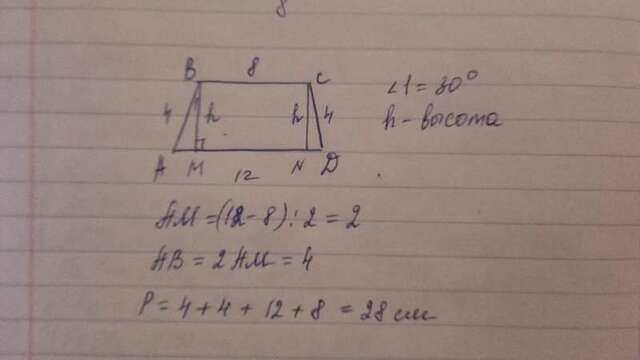 B 8 C
∠1 = 30°
4 h h 4
h - высота
A M N D
12
AM = (12 - 8) : 2 = 2
AB = 2 AM = 4
P = 4 + 4 + 12 + 8 = 28 см